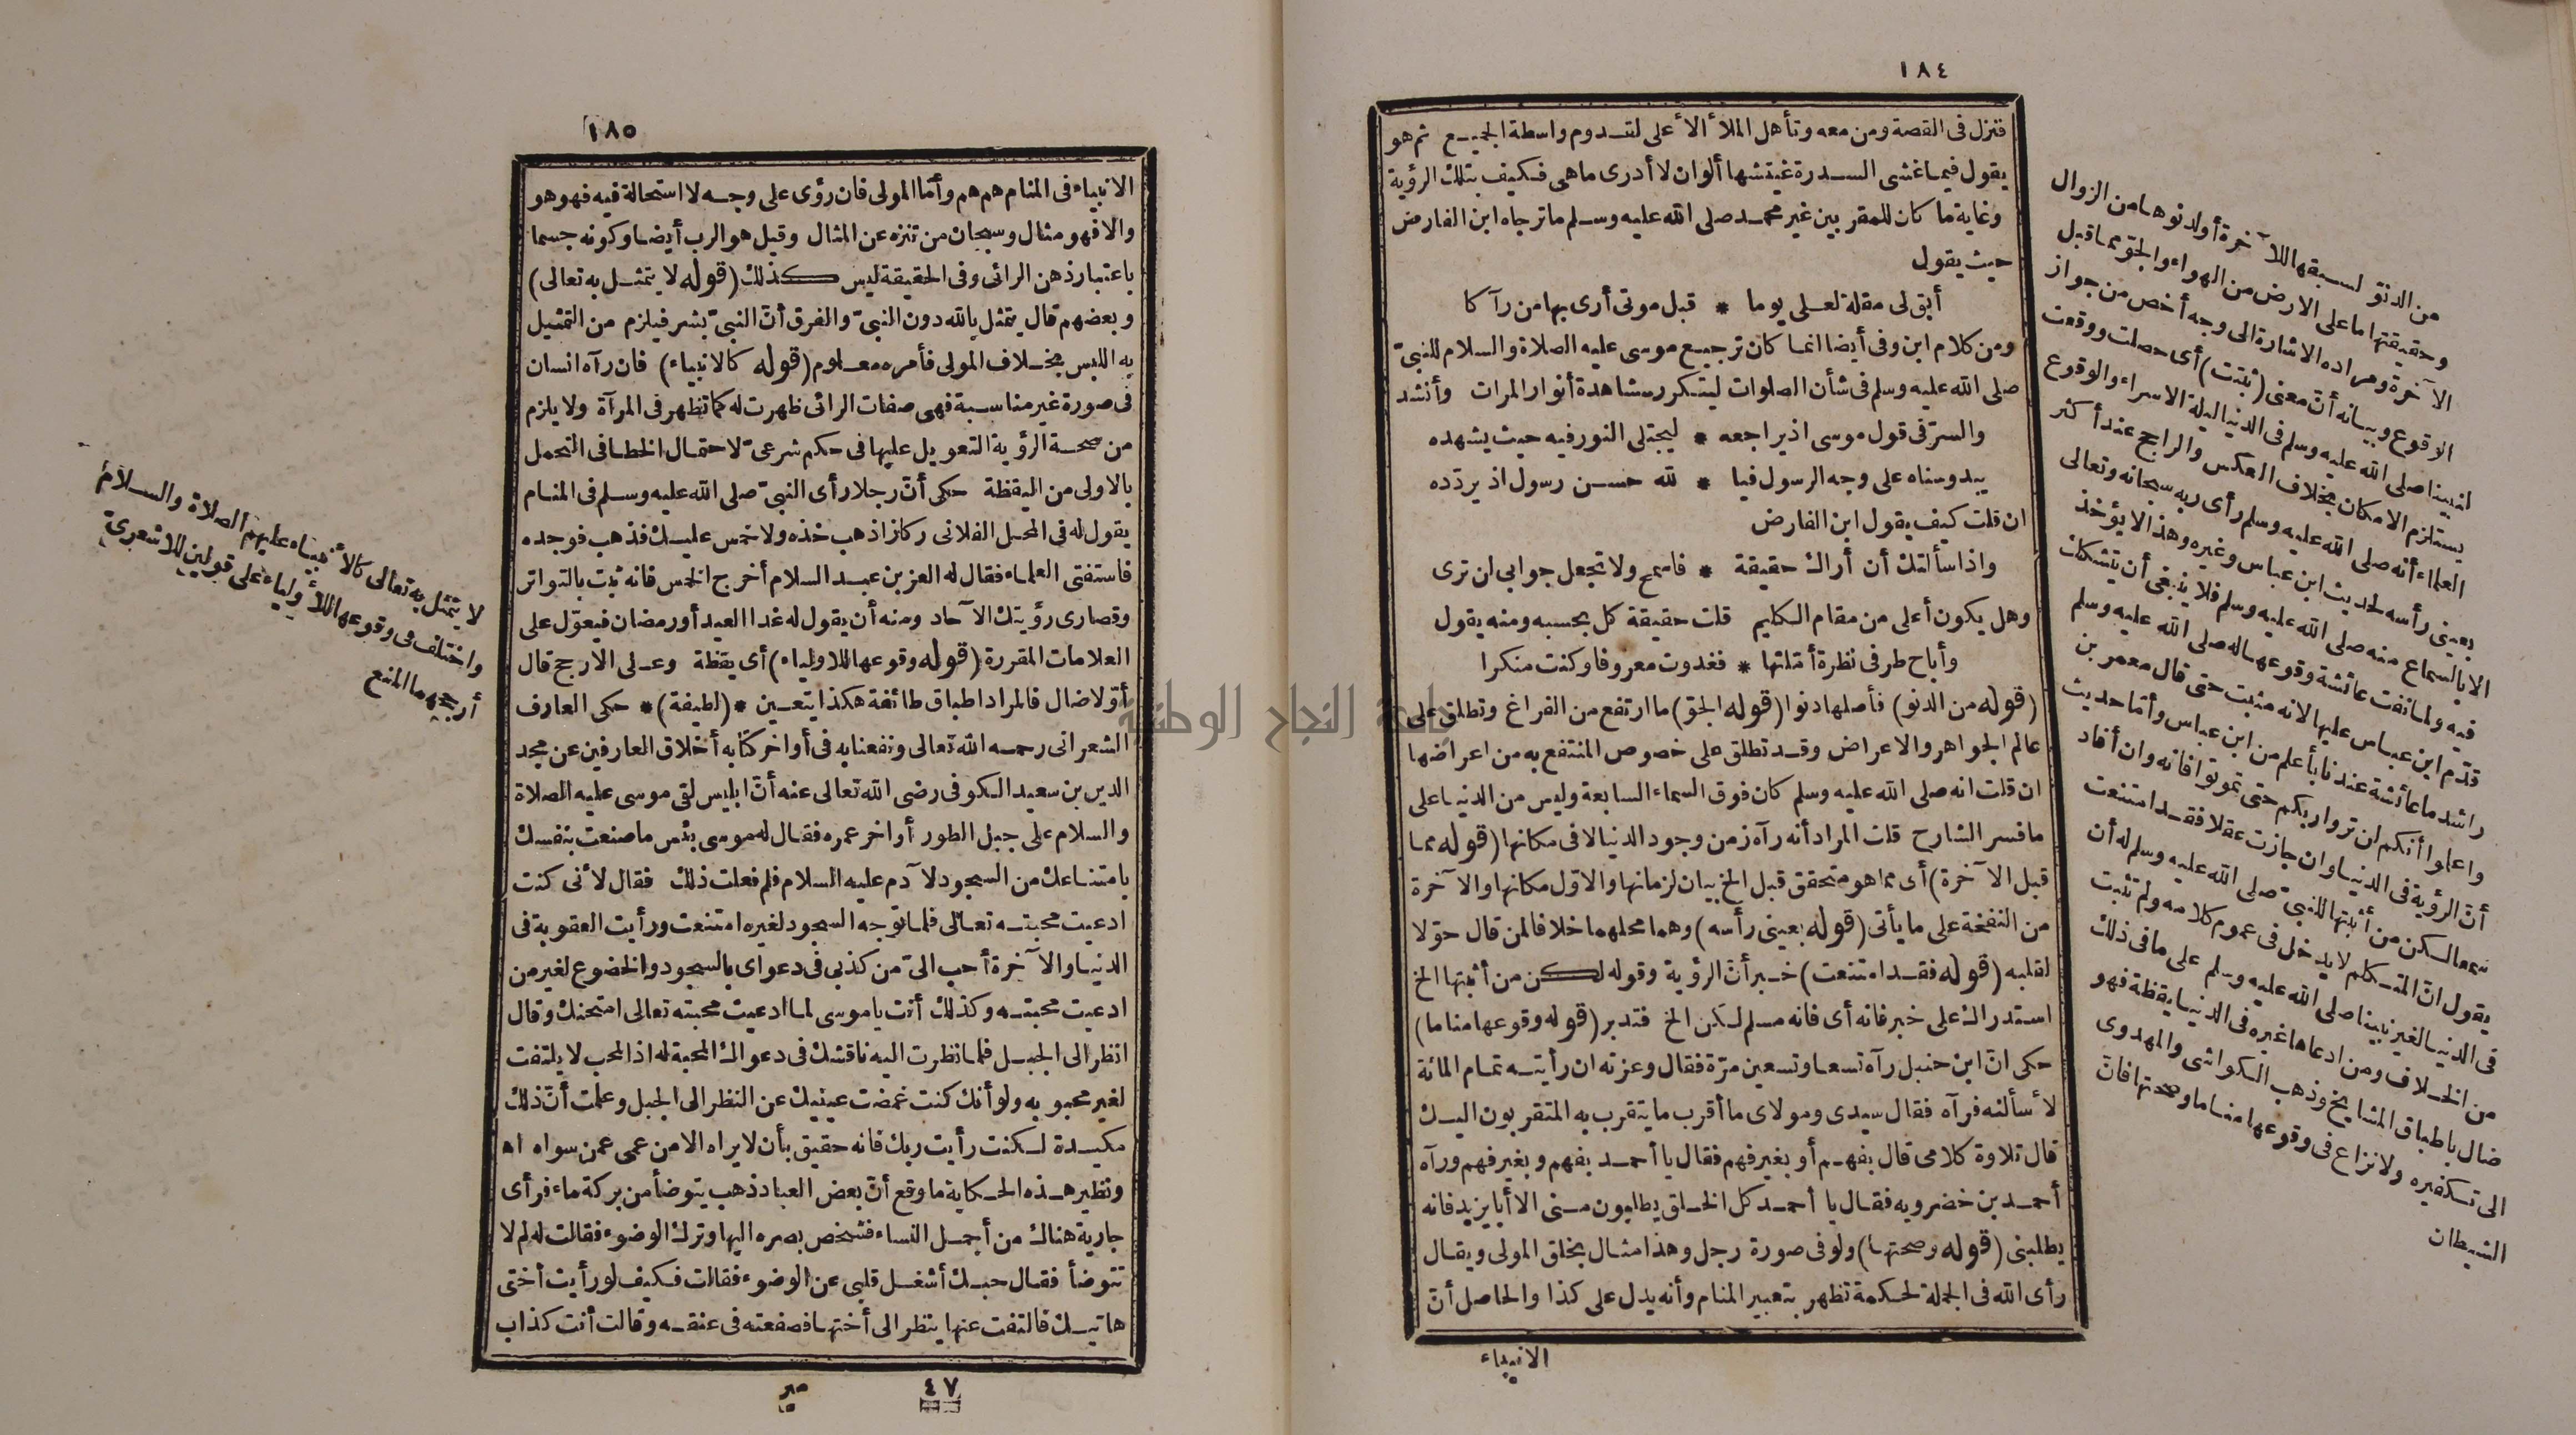 ١٨٤
فتنزل فى القصة ومن معه وتأهل الملأ الأعلى لقدوم واسطة الجميع ثم هو
يقول فيما غشى السدرة غيتشها ألوان لا أدرى ماهى فكيف بتلك الرؤية
وغاية ما كان للمقربين غير محمد صلى الله عليه وسلم ماترجاه ابن الفارض
حيث يقول
أبق لى مقلة لعلى يوما * قبل موتى أرى بها من رآكا
ومن كلام ابن وفى أيضا انما كان ترجيع موسى عليه الصلاة والسلام للنبىّ
صلى الله عليه وسلم فى شأن الصلوات ليتكرر مشاهدة أنوار المرات وأنشد
والسرّ فى قول موسى اذ يراجعه * ليجتلى النور فيه حيث يشهده
يبدو سناه على وجه الرسول فيا * لله حسن رسول اذ يردّده
ان قلت كيف يقول ابن الفارض
واذا سألتك أن أراك حقيقة * فاسمح ولا تجعل جوابى لن ترى
وهل يكون أعلى من مقام الكليم قلت حقيقة كل بحسبه ومنه يقول
وأباح طرفى نظرة أملتها * فغدوت معروفا وكنت منكرا
(قوله من الدنو) فأصلها دنوا (قوله الجوّ) ما ارتفع من الفراغ وتطلق على
عالم الجواهر والاعراض وقد تطلق على خصوص المنتفع به من اعراضها
ان قلت انه صلى الله عليه وسلم كان فوق السماء السابعة وليس من الدنيا على
ما فسر الشارح قلت المراد أنه رآه زمن وجود الدنيا لا فى مكانها (قوله مما
قبل الآخرة) أى مما هو متحقق قبل الخ بيان لزمانها والاوّل مكانها والآخرة
من النفخة على ما يأتى (قوله بعينى رأسه) وهما محلهما خلافا لمن قال حوّلا
لقلبه (قوله فقد امتنعت) خبر أنّ الرؤية وقوله لكن من أثبتها الخ
استدراك على خبر فانه أى فانه مسلم لكن الخ فتدبر (قوله وقوعها مناما)
حكى انّ ابن حنبل رآه تسعا وتسعين مرّة فقال وعزته ان رأيته تمام المائة
لأسألنه فرآه فقال سيدى ومولاى ما أقرب ما يتقرب به المتقربون اليك
قال تلاوة كلامى قال بفهم أو بغير فهم فقال يا أحمد بفهم وبغير فهم ورآه
أحمد بن خضرويه فقال يا أحمد كل الخلق يطلبون منى الا أبا يزيد فانه
يطلبنى (قوله وصحتها) ولو فى صورة رجل وهذا مثال يخلق المولى ويقال
رأى الله فى الجملة لحكمة تظهر بتعبير المنام وأنه يدل على كذا والحاصل أنّ
الانبياء
من الدنوّ لسبقها للآخرة أو لدنوها من الزوال
وحقيقتها ما على الارض من الهواء والجوّ مما قبل
الآخرة ومراده الاشارة الى وجه أخص من جواز
الوقوع وبيانه أنّ معنى (ثبتت) أى حصلت ووقعت
لنبينا صلى الله عليه وسلم فى الدنيا ليلة الاسراء والوقوع
يستلزم الامكان بخلاف العكس والراجح عند أكثر
العلماء أنه صلى الله عليه وسلم رأى ربه سبحانه وتعالى
بعينى رأسه لحديث ابن عباس وغيره وهذا لا يؤخذ
الا بالسماع منه صلى الله عليه وسلم فلا ينبغى أن يتشكك
فيه ولما نفت عائشة وقوعها له صلى الله عليه وسلم
قدّم ابن عباس عليها لانه مثبت حتى قال معمر بن
راشد ما عائشة عندنا بأعلم من ابن عباس وأمّا حديث
واعلموا أنكم لن تروا ربكم حتى تموتوا فانه وان أفاد
أنّ الرؤية فى الدنيا وان جازت عقلا فقد امتنعت
سمعا لكن من أثبتها للنبىّ صلى الله عليه وسلم له أن
يقول انّ المتكلم لا يدخل فى عموم كلامه ولم تثبت
فى الدنيا لغير نبينا صلى الله عليه وسلم على ما فى ذلك
من الخلاف ومن ادعاها غيره فى الدنيا يقظة فهو
ضال باطباق المشايخ وذهب الكواشى والمهدوى
الى تكفيره ولا نزاع فى وقوعها مناما وصحتها فانّ
الشيطان
١٨٥
الانبياء فى المنام هم هم وأمّا المولى فان رؤى على وجه لا استحالة فيه فهو هو
والا فهو مثال وسبحان من تنزه عن المثال وقيل هو الرب أيضا وكونه جسما
باعتبار ذهن الرائى وفى الحقيقة ليس كذلك (قوله لا يتمثل به تعالى)
وبعضهم قال يتمثل بالله دون النبىّ والفرق أنّ النبىّ بشر فيلزم من التمثيل
به اللبس بخلاف المولى فأمره معلوم (قوله كالانبياء) فان رآه انسان
فى صورة غير مناسبة فهى صفات الرائى ظهرت له كما تظهر فى المرآة ولا يلزم
من صحة الرؤية التعويل عليها فى حكم شرعىّ لاحتمال الخطا فى التحمل
بالاولى من اليقظة حكى أنّ رجلا رأى النبىّ صلى الله عليه وسلم فى المنام
يقول له فى المحل الفلانى ركاز اذهب خذه ولا خمس عليك فذهب فوجده
فاستفتى العلماء فقال له العز بن عبد السلام أخرج الخمس فانه ثبت بالتواتر
وقصارى رؤيتك الآحاد ومنه أن يقول له غدا العيد أو رمضان فيعوّل على
العلامات المقررة (قوله وقوعها للاولياء) أى يقظة وعلى الارجح قال
أوّلا ضال فالمراد اطباق طائفة هكذا يتعين * (لطيفة) * حكى العارف
الشعرانى رحمه الله تعالى ونفعنا به فى أواخر كتابه أخلاق العارفين عن مجد
الدين بن سعيد الكوفى رضى الله تعالى عنه أنّ ابليس لقى موسى عليه الصلاة
والسلام على جبل الطور أواخر عمره فقال له موسى بئس ما صنعت بنفسك
بامتناعك من السجود لآدم عليه السلام فلم فعلت ذلك فقال لأنى كنت
ادعيت محبته تعالى فلما توّجه السجود لغيره امتنعت ورأيت العقوبة فى
الدنيا والآخرة أحب الىّ من كذبى فى دعواى بالسجود والخضوع لغير من
ادعيت محبته وكذلك أنت يا موسى لما ادعيت محبته تعالى امتحنك وقال
انظر الى الجبل فلما نظرت اليه ناقشك فى دعواك المحبة له اذ المحب لا يلتفت
لغير محبوبه ولو أنك كنت غمضت عينيك عن النظر الى الجبل وعلمت أنّ ذلك
مكيدة لكنت رأيت ربك فانه حقيق بأن لا يراه الا من عمى عمن سواه اه
ونظير هذه الحكاية ما وقع أنّ بعض العباد ذهب يتوضأ من بركة ماء فرأى
جارية هناك من أجمل النساء فشخص بصره اليها وترك الوضوء فقالت له لم لا
تتوضأ فقال حبك أشغل قلبى عن الوضوء فقالت فكيف لو رأيت أختى
هاتيك فالتفت عنها ينظر الى أختها فصفعته فى عنقه وقالت أنت كذاب
٤٧
مير
لا يتمثل به تعالى كالأنبياء عليهم الصلاة والسلام
واختلف فى وقوعها للأولياء على قولين للاشعرىّ
أرجحهما المنع
جامعة النجاح الوطنية